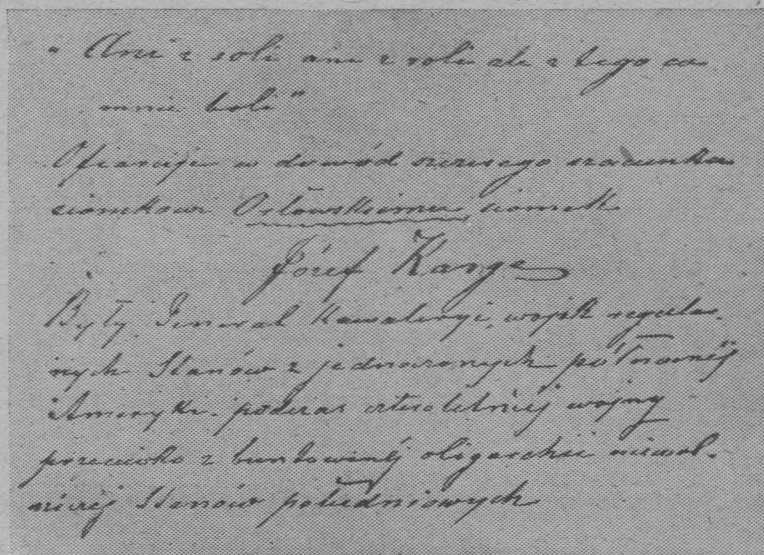 "Ani z soli ani z roli ale z tego co
mnie boli"
Ofiaruje w dowód szczerego szacunku
ziomkowi Orłowskiemu, ziomek
Józef Karge
Były Jenerał Kawaleryi, wojsk regular-
nych Stanów zjednoczonych północnéj
Ameryki. podczas cztroletniéj wojny
przeciwko zbuntowanéj oligarchii niewol-
niczéj Stanów południowych